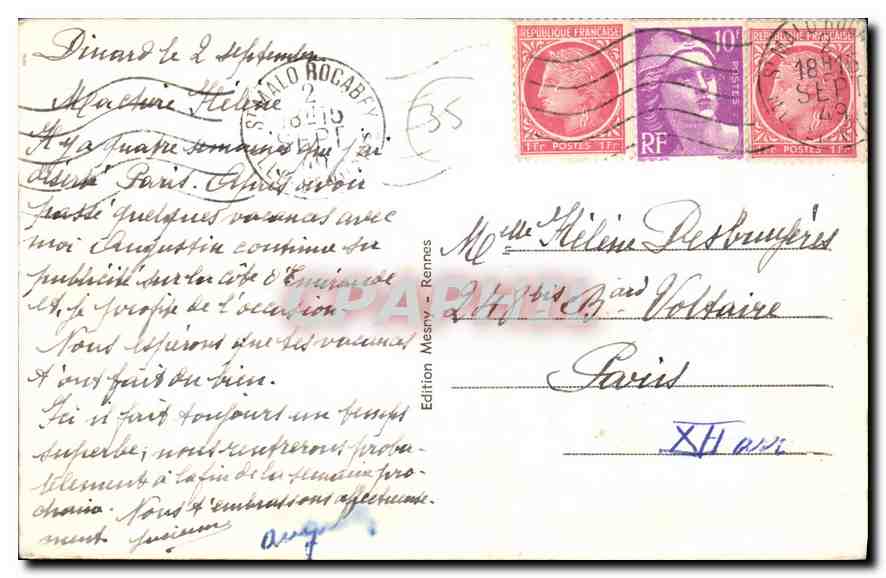 Dinard le 2 septembre
Ma chère Hélène
Il y a quatre semaines que j'ai
déserté Paris. Après avoir
passé quelques vacances avec
moi Augustin continue sa
publicité sur la côte d'Emeraude
et, je profite de l'occasion.
Nous espérons que tes vacances
t'ont fait du bien.
Ici il fait toujours un temps
superbe; nous rentrerons proba-
blement à la fin de la semaine pro-
chaine. Nous t'embrassons affectueuse-
ment
ST MALO ROCABEY
2
18H15
SEPT
35
Edition Mesny - Rennes
REPUBLIQUE FRANÇAISE
1Fr POSTES 1Fr
10F
POSTES
RF
REPUBLIQUE FRANÇAISE
1Fr POSTES 1Fr
ST MALO
2
18H15
SEPT
49
Melle Hélène Desbruyères
248bis Bard Voltaire
Paris
XII arr